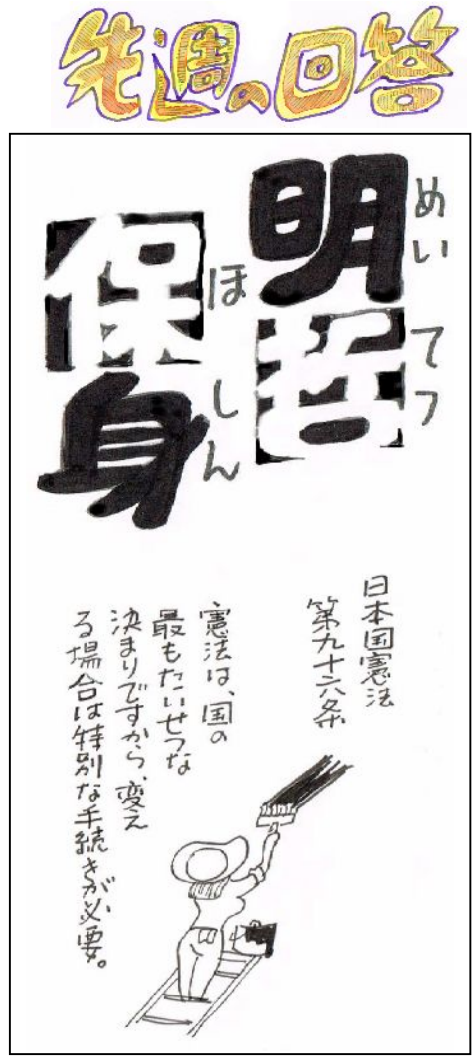 先週の回答
明哲
めいてつ
保身
ほしん
日本国憲法
第九十六条
憲法は、国の
最もたいせつな
決まりですから、変え
る場合は特別な手続きが必要。